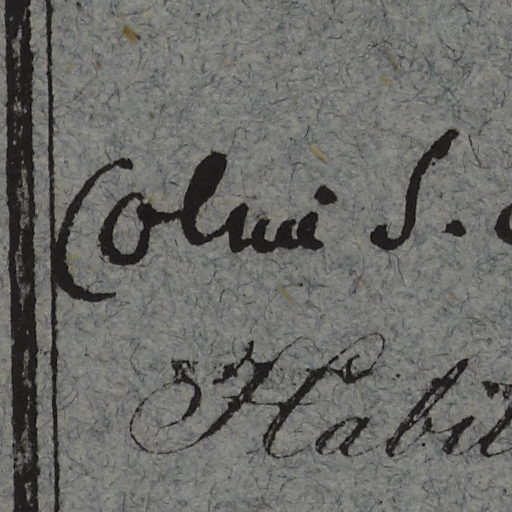 Colmi S.
Habit